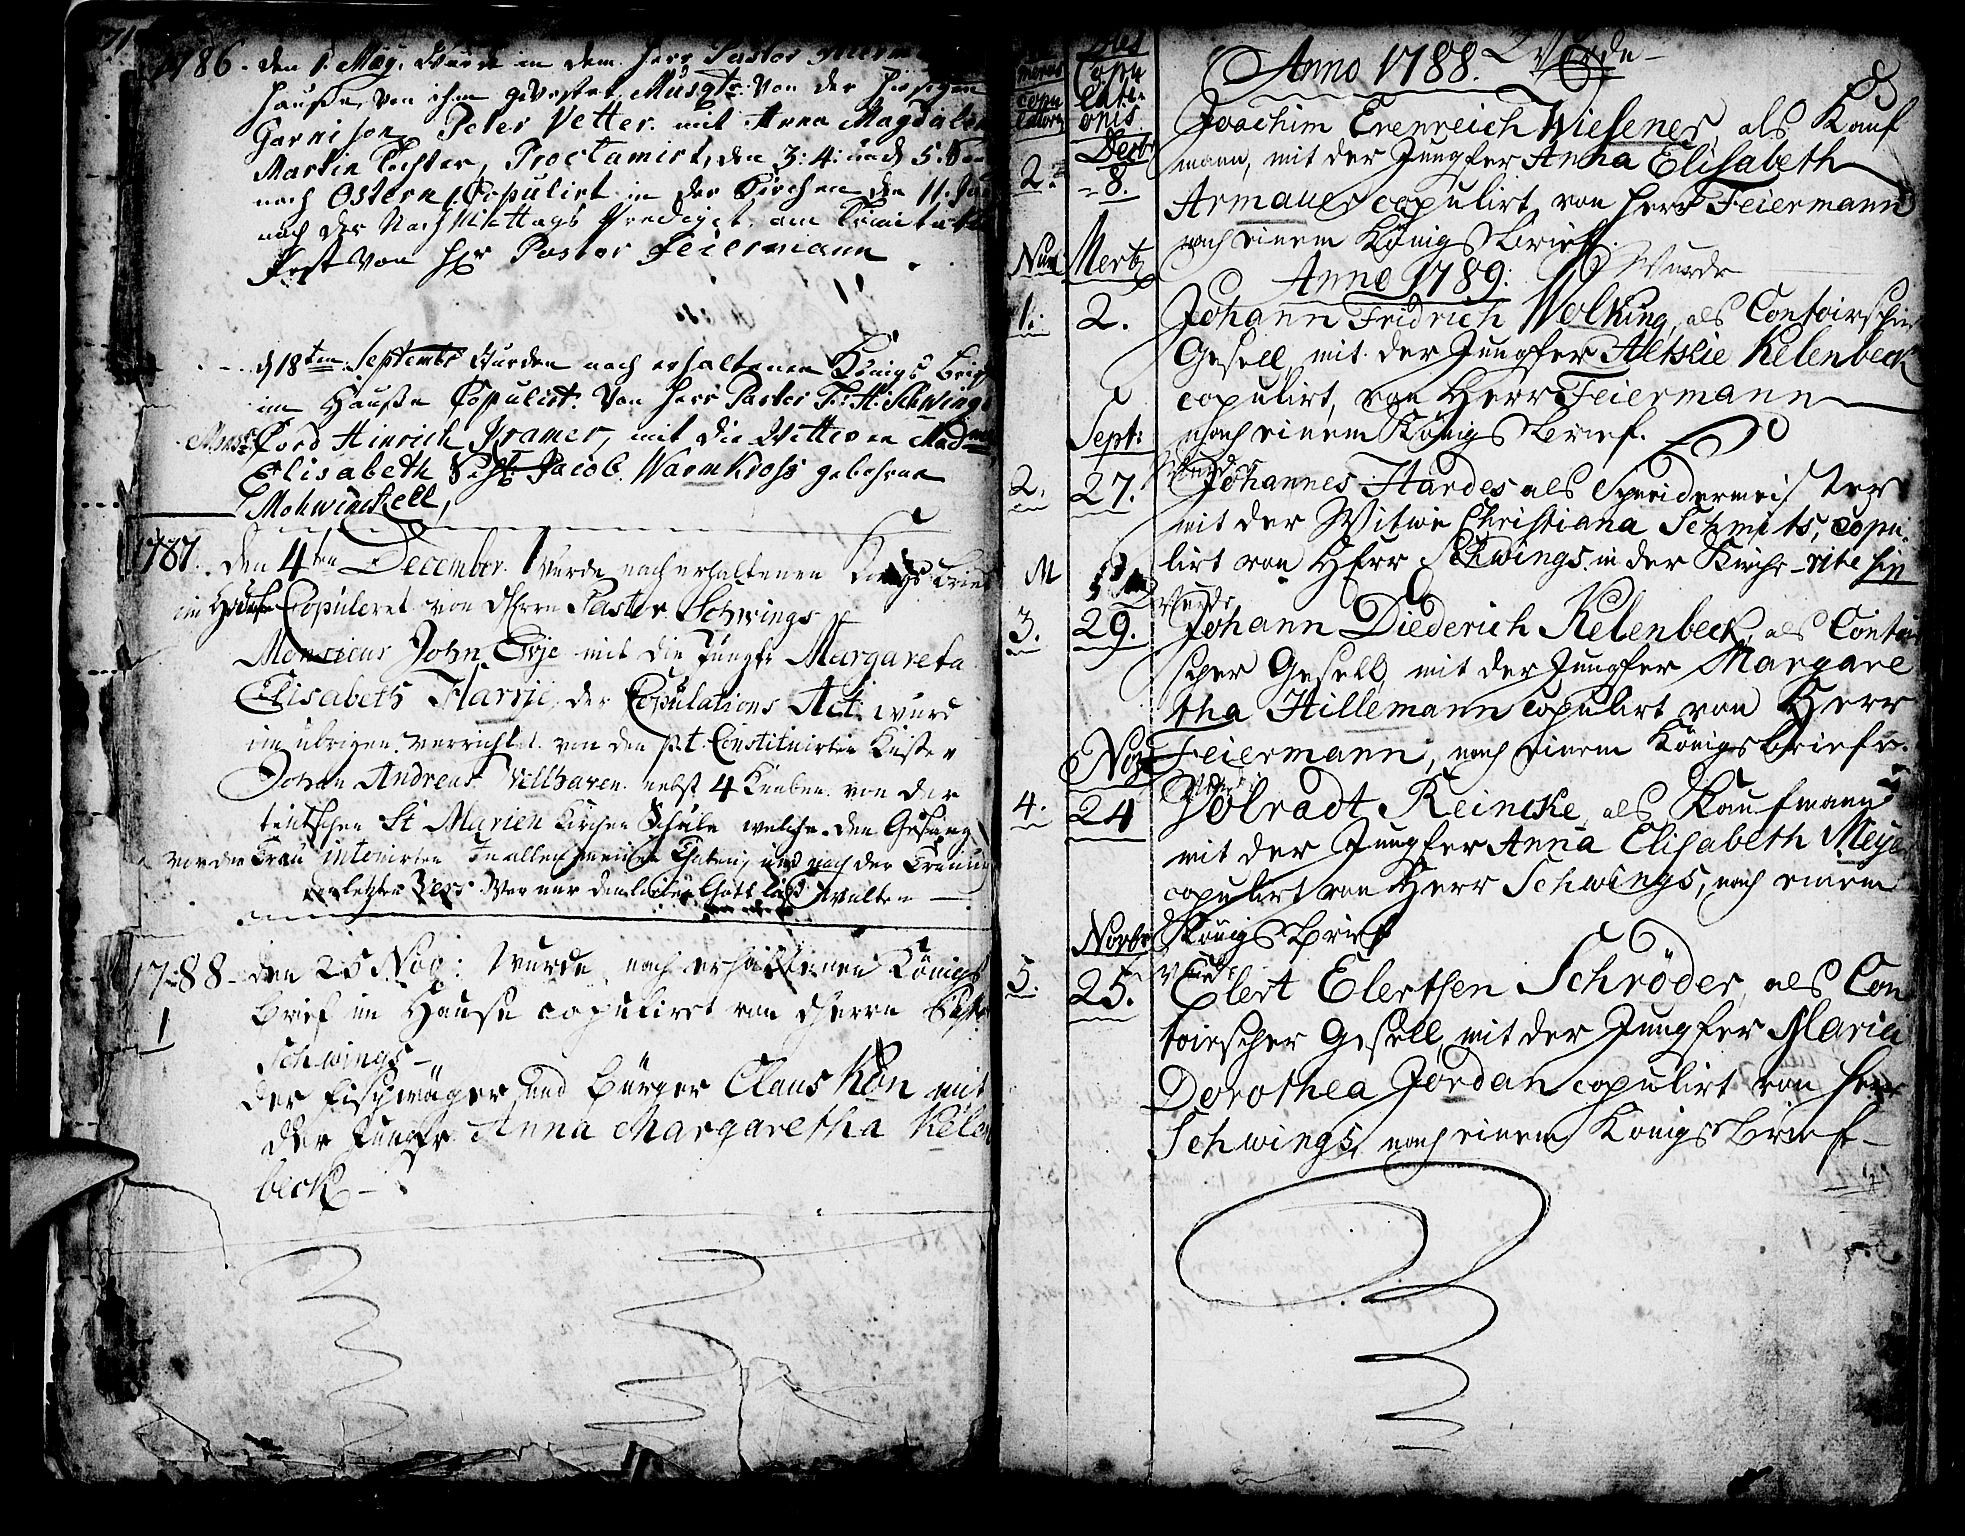 1786. den 1. May. Wurde in dem Herr Pastor
Hauße, von ihm Musqtr. Von der hiesigen
Garnison Peter Vetter. mit Anna Magdalen
Martin Tochter, Proclamirt, den 3: 4: und 5. Son
nach Ostern, Copulirt in der Kirchen den 11. Ju
nach der Nach Mittags Predigt, am Trinitatis
Fest Von Hr Pastor Feiermann
d 18ten Septembr Wurden nach erhaltenen Königs Brief
im Hauße Copulirt. Von Herr Pastor F. H. Schwings
Monsr Cord Hinrich Kramer, mit die Wittwe Mad
Elisabeth Jacob Warmkross gebohrne
Mohwinckell,
1787. Den 4ten December. Wurde nach erhaltenen Königs Brief
im Hause Copuleret von Herrn Pastor Schwings
Monsieur John Grje mit die Jungfr Margareta
Elisabeth Harrje, der Copulations Act: wurd
im übrigen verrichtet von den p.t. Constituirten Küster
Johan Andreas Vellhaven nebst 4 Knaben von der
teutschen St Marien Kirchen Schule welche den Gesang
vor der Trau intonirten In allen meinen Thaten, und nach der Trauung
den letzten Vers Wer nur den lieben Gott läst walten
1788 den 26 Nov: Wurde nach erhaltenen Königs
1
Brief im Hause copuliret von Herrn Past
Schwings
der Fischwäger und Bürger Claus Kön mit
der Jungfr Anna Margaretha Kelen
beck
Copu
lati
onis
Anno 1788. Wurde
2. Decbr 8. Joachim Erenreich Wiesener, als Kauf
mann, mit der Jungfer Anna Elisabeth
Armauer copulirt von Herr Feiermann
nach einem Königsbrief.
Num Mertz
Anno 1789. Wurde
1. 2. Johann Fridrich Wolking, als Contoirscher
Gesell mit der Jungfer Altskie Kelenbeck
copulirt, von Herr Feiermann
nach einem Königsbrief.
Sept:
2. 27. Wurde Johannes Hardes als Schneidermeister
mit der Witwe Christiana Schmits, copu
lirt von Herr Schwings in der Kirche
3. 29. Wurde Johann Diederich Kelenbeck, als Contoir
scher Gesell, mit der Jungfer Margare
tha Hillemann copulirt von Herr
Feiermann, nach einem Königsbriefe.
Nov
4. 24 Wurde Volradt Reincke, als Kaufmann
mit der Jungfer Anna Elisabeth Meyer
copulirt von Herr Schwings, nach einem
Königsbrief
Novbr
5. 25. Wurde Elert Elertsen Schröder, als Con
toirscher Gesell, mit der Jungfer Maria
Dorothea Jordan copulirt von Herr
Schwings, nach einem Königs Brief